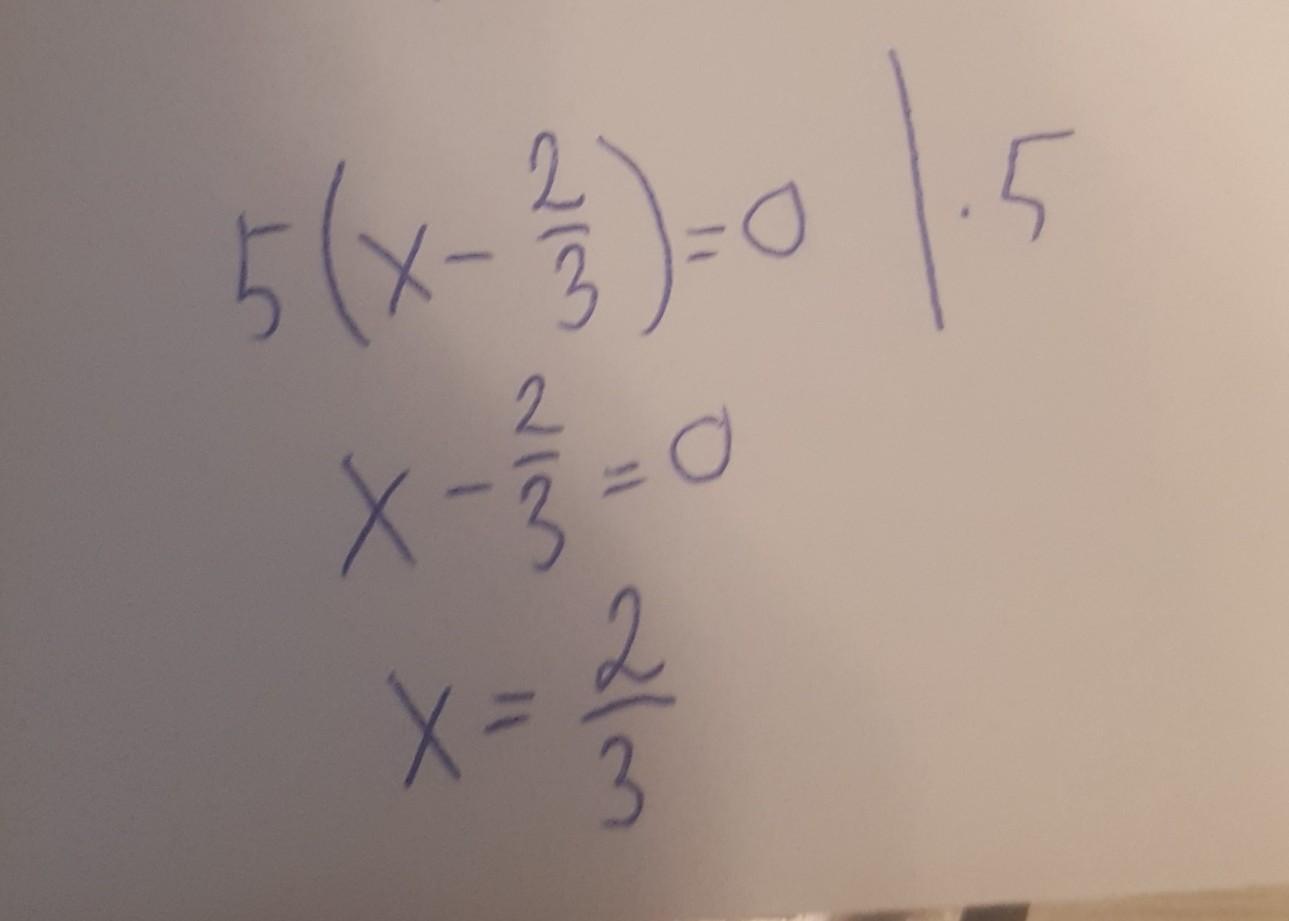 5(x - 2/3) = 0 | · 5
x - 2/3 = 0
x = 2/3